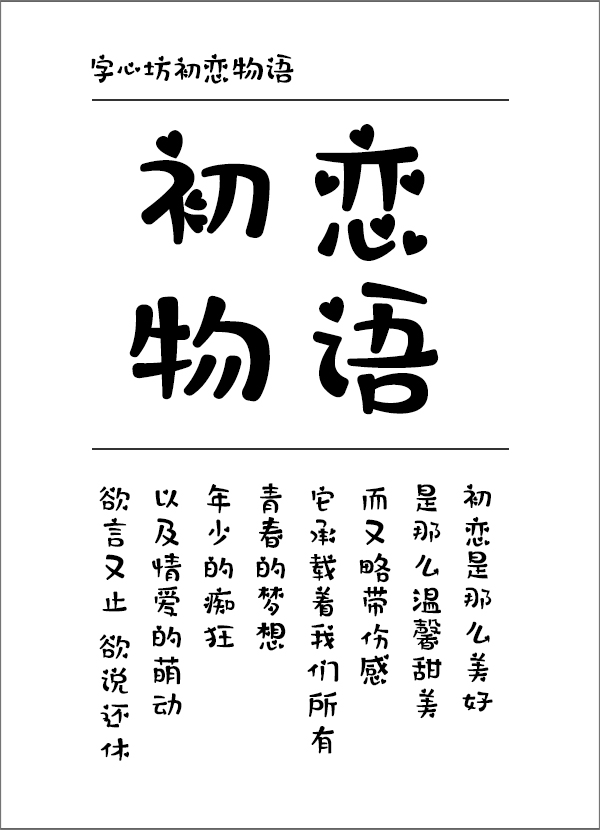 字心坊初恋物语
初恋
物语
初恋是那么美好
是那么温馨甜美
而又略带伤感
它承载着我们所有
青春的梦想
年少的痴狂
以及情爱的萌动
欲言又止 欲说还休